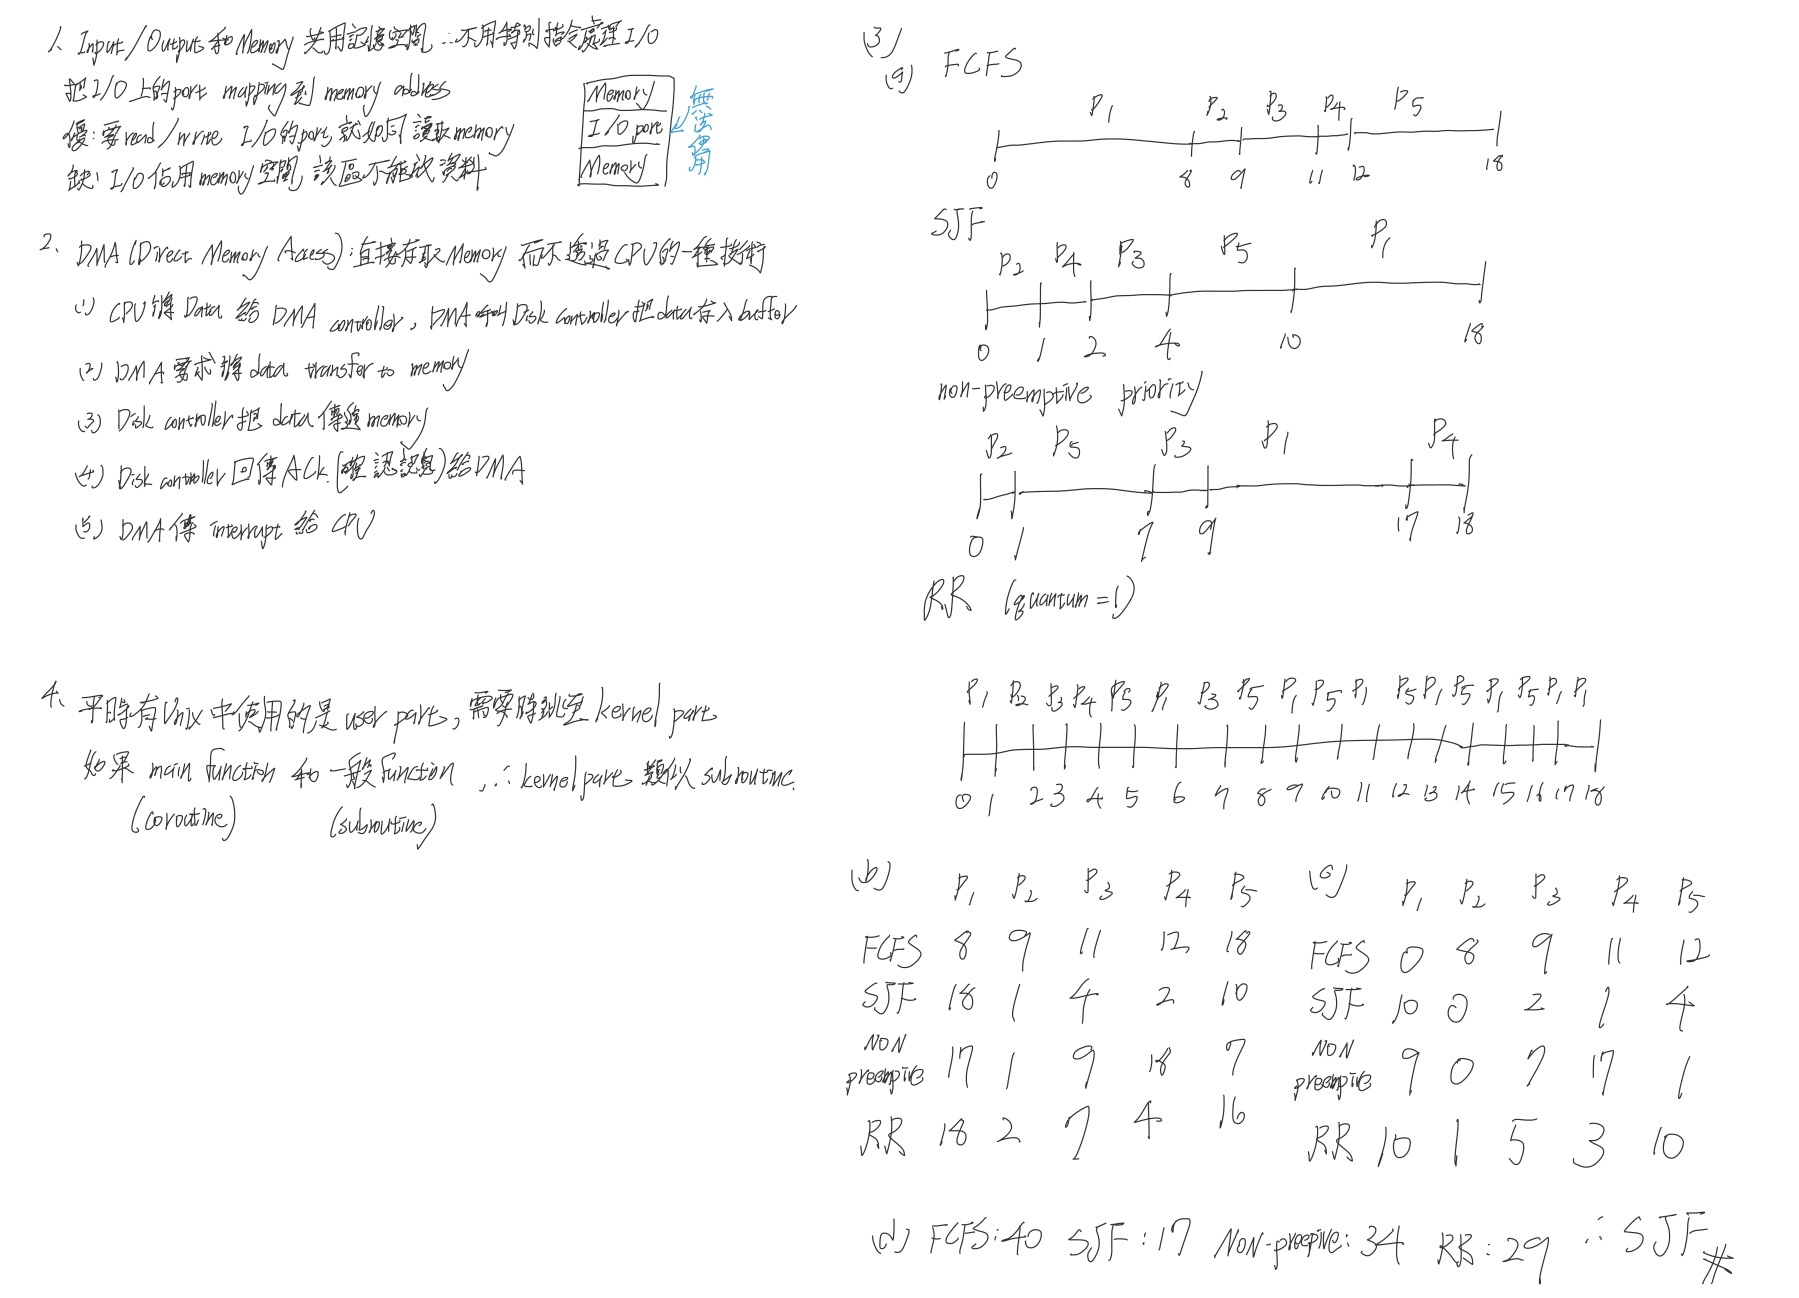 1、Input/Output 和 Memory 共用記憶空間 ∴不用特別指令處理 I/O
把 I/O 上的 port mapping 到 memory address
優:要 read/write I/O 的 port, 就如同讀取 memory
缺:I/O 佔用 memory 空間, 該區不能放資料
Memory
I/O port
Memory
無法使用
2、DMA (Direct Memory Access):直接存取 Memory 而不透過 CPU 的一種技術
(1) CPU 傳 Data 給 DMA controller, DMA 叫 Disk controller 把 data 存入 buffer
(2) DMA 要求將 data transfer to memory
(3) Disk controller 把 data 傳進 memory
(4) Disk controller 回傳 ACK.(確認訊息) 給 DMA
(5) DMA 傳 interrupt 給 CPU
4、平時有 Unix 中使用的是 user part, 需要時跳至 kernel part
如果 main function 和 一般 function ,∴kernel part 類似 subroutine.
(coroutine) (subroutine)
(3)
(a) FCFS
P1 P2 P3 P4 P5
0 8 9 11 12 18
SJF
P2 P4 P3 P5 P1
0 1 2 4 10 18
non-preemptive priority
P2 P5 P3 P1 P4
0 1 7 9 17 18
RR (quantum=1)
P1 P2 P3 P4 P5 P1 P3 P5 P1 P5 P1 P5 P1 P5 P1 P5 P1 P1
0 1 2 3 4 5 6 7 8 9 10 11 12 13 14 15 16 17 18
(b) P1 P2 P3 P4 P5
FCFS 8 9 11 12 18
SJF 18 1 4 2 10
NON
preempive 17 1 9 18 7
RR 18 2 7 4 16
(c) P1 P2 P3 P4 P5
FCFS 0 8 9 11 12
SJF 10 0 2 1 4
NON
preempive 9 0 7 17 1
RR 10 1 5 3 10
(d) FCFS:40 SJF:17 NON-preepive:34 RR:29 ∴SJF#